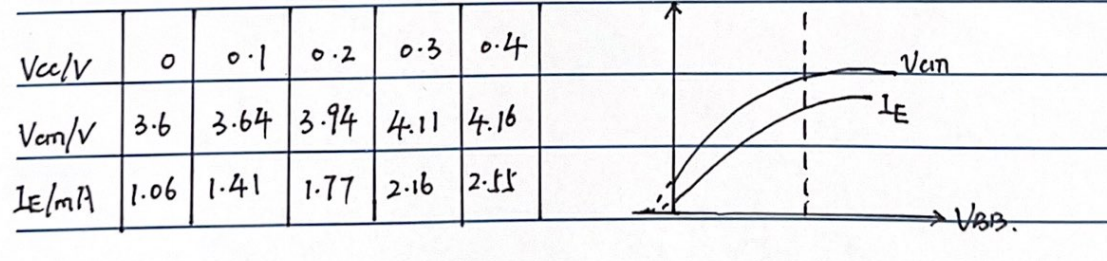 Vcc/V 0 0.1 0.2 0.3 0.4
Vcm/V 3.6 3.64 3.94 4.11 4.16
IE/mA 1.06 1.41 1.77 2.16 2.55
Vcm
IE
VBB.